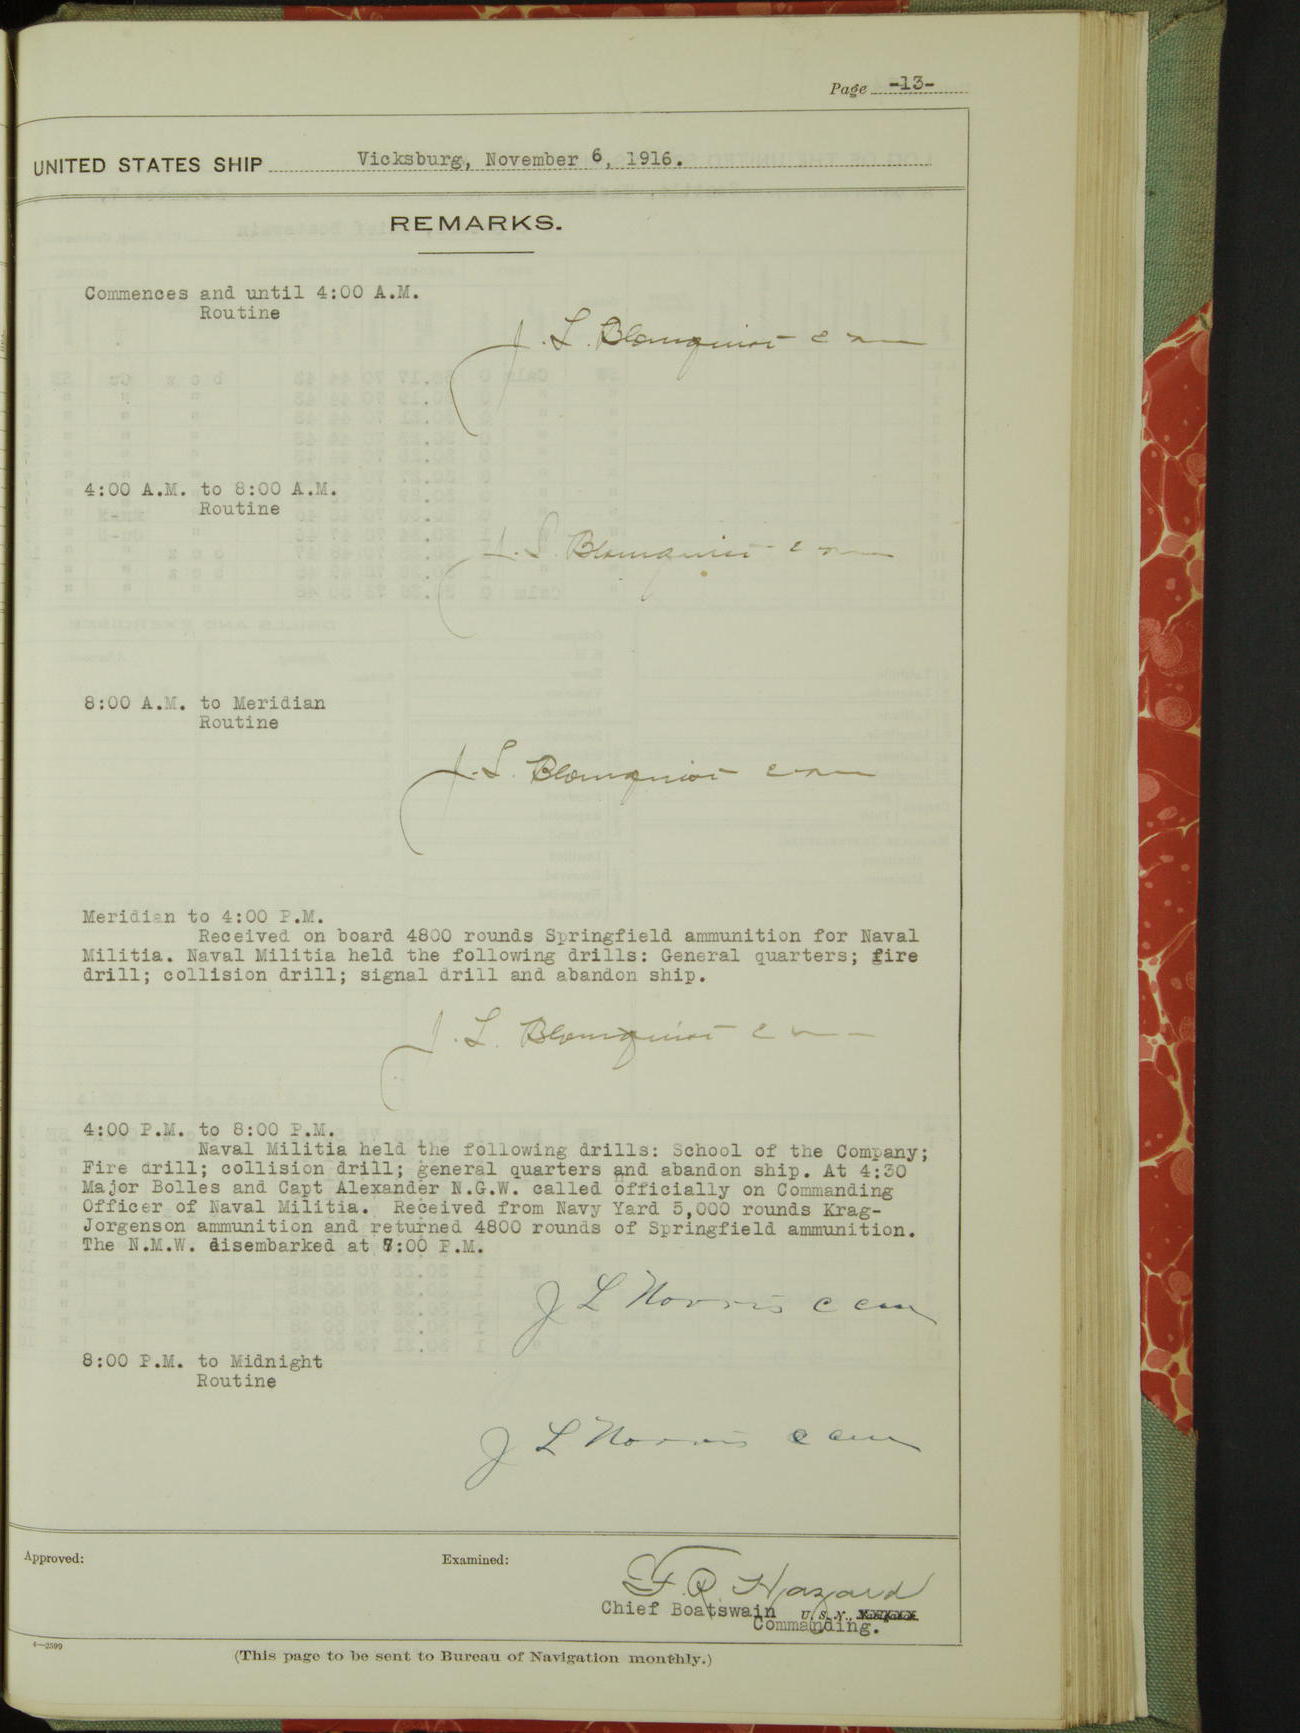 Page -13-
UNITED STATES SHIP Vicksburg, November 6, 1916.
REMARKS.
Commences and until 4:00 A.M.
Routine
J. L. Blomquist
4:00 A.M. to 8:00 A.M.
Routine
J. L. Blomquist
8:00 A.M. to Meridian
Routine
J. L. Blomquist
Meridian to 4:00 P.M.
Received on board 4800 rounds Springfield ammunition for Naval
Militia. Naval Militia held the following drills: General quarters; fire
drill; collision drill; signal drill and abandon ship.
J. L. Blomquist
4:00 P.M. to 8:00 P.M.
Naval Militia held the following drills: School of the Company;
Fire drill; collision drill; general quarters and abandon ship. At 4:30
Major Bolles and Capt Alexander N.G.W. called officially on Commanding
Officer of Naval Militia. Received from Navy Yard 5,000 rounds Krag-
Jorgenson ammunition and returned 4800 rounds of Springfield ammunition.
The N.M.W. disembarked at :00 P.M.
J L Norris
8:00 P.M. to Midnight
Routine
J L Norris
Approved:
Examined:
F. R. Hazard
Chief Boatswain U. S. N.,
Commanding.
4—2599
(This page to be sent to Bureau of Navigation monthly.)